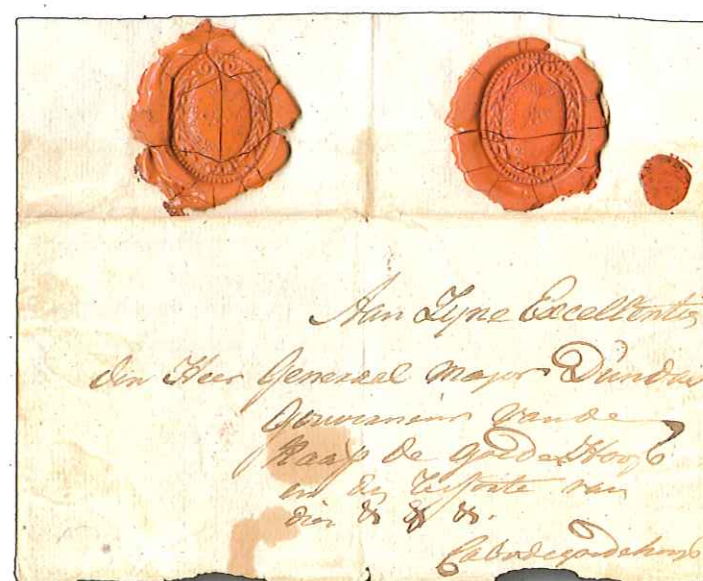 Aan Zyne Excellentie
den Heer Generaal Major Dundas
Gouverneur van de
Kaap de Goede Hoop
en den ressorte van
dien & & &.